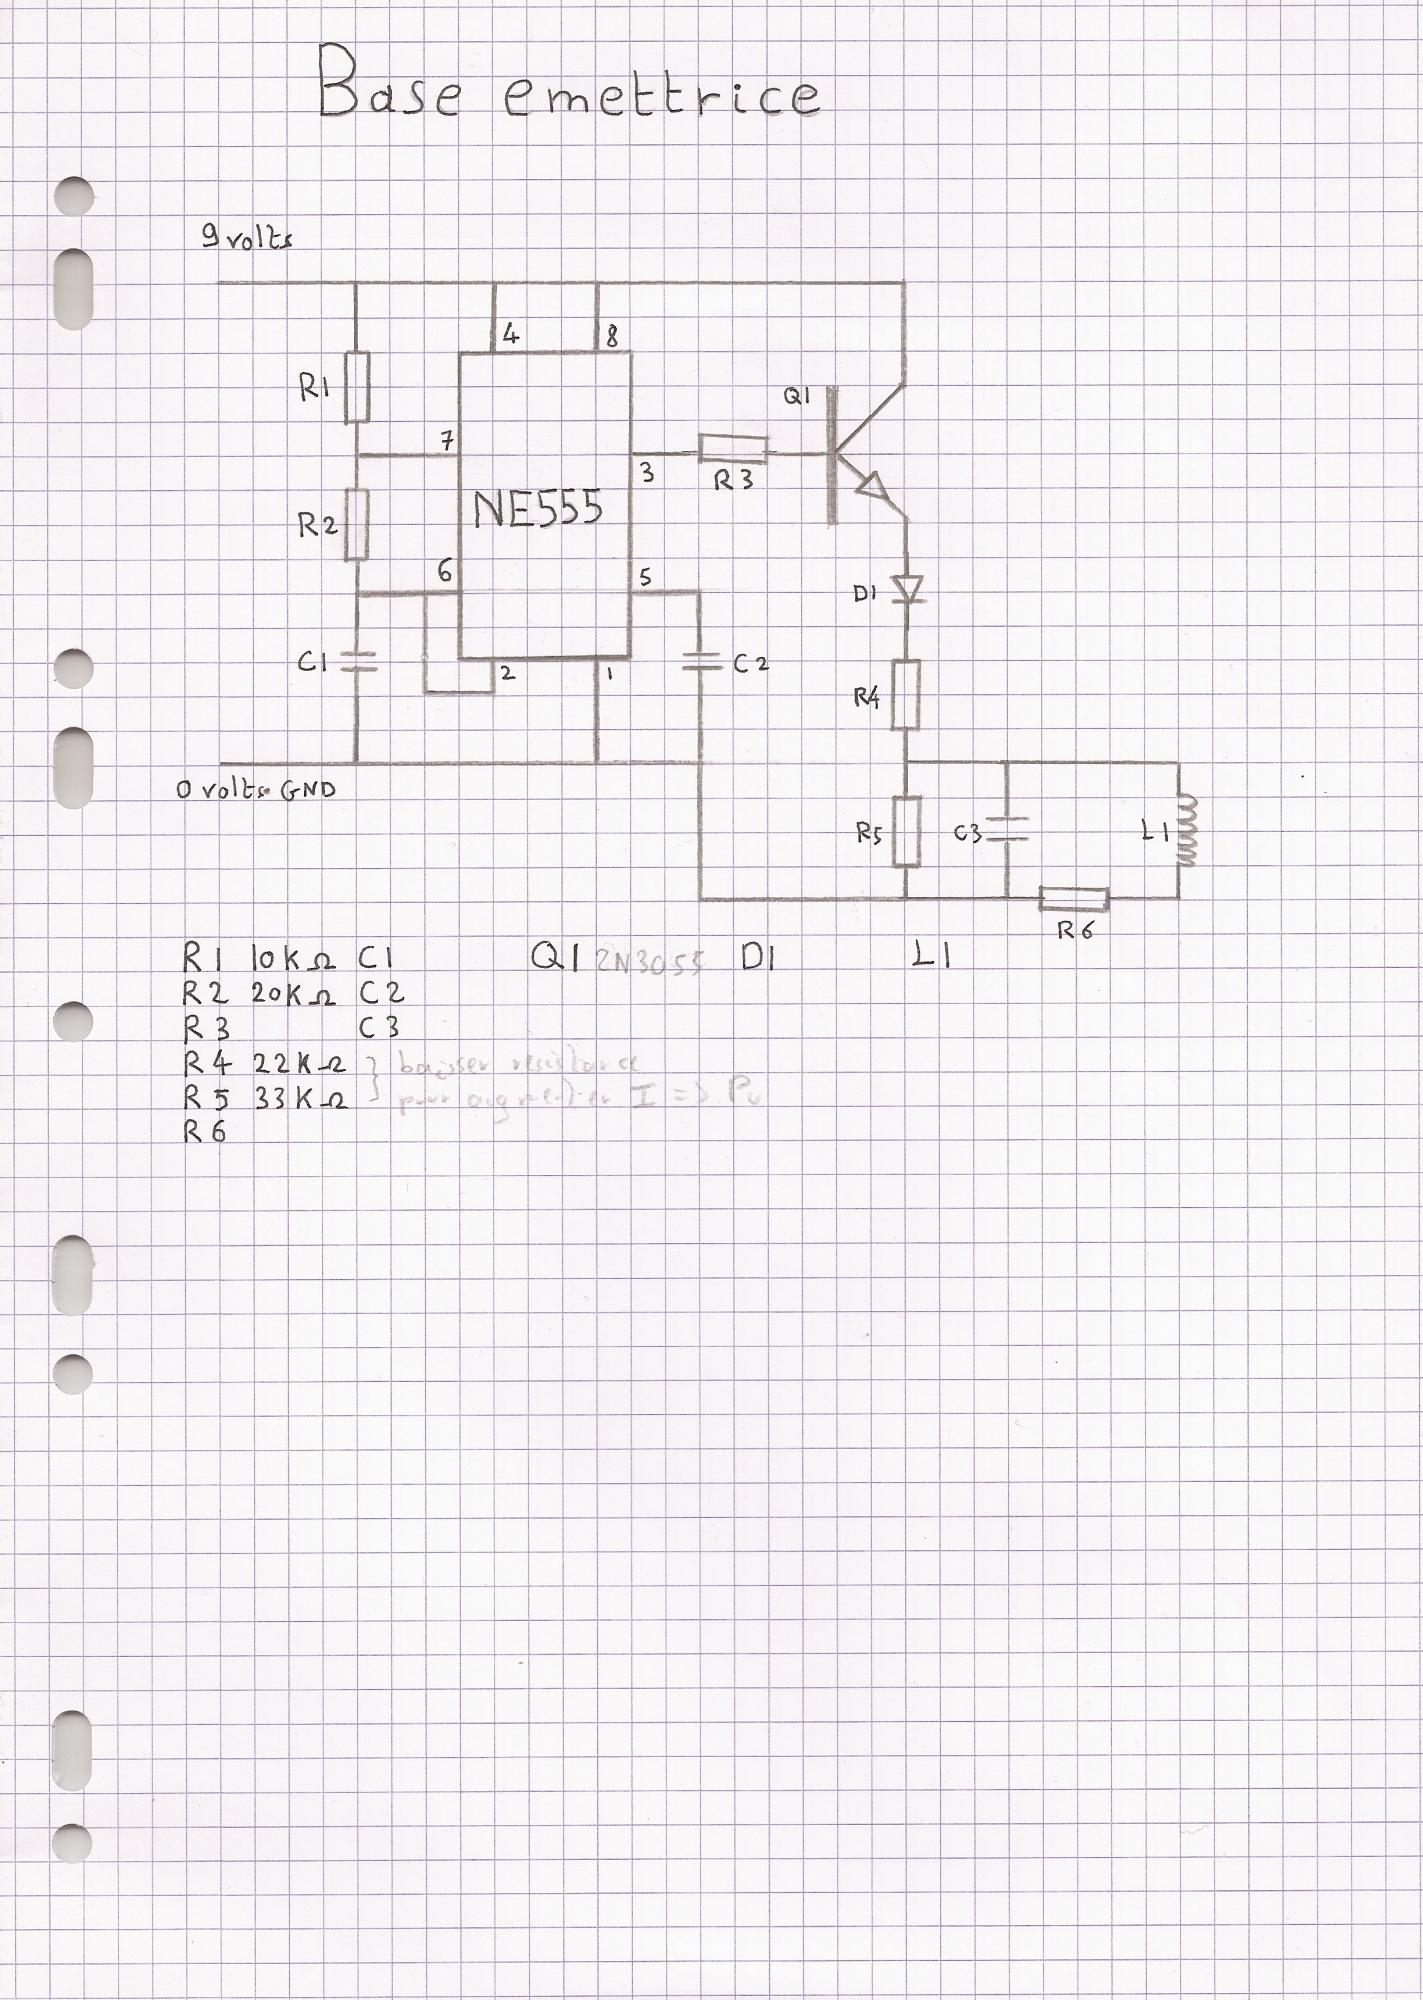 Base emettrice
9 volts
4 8
R1
Q1
7
3
R3
NE555
R2
6
5
D1
C1
2
1
C2
R4
0 volts GND
R5
C3
L1
R6
R1 10KΩ C1 Q1 2N3055 D1 L1
R2 20KΩ C2
R3 C3
R4 22KΩ } baisser resistance
R5 33KΩ } pour augmenter I =>
R6